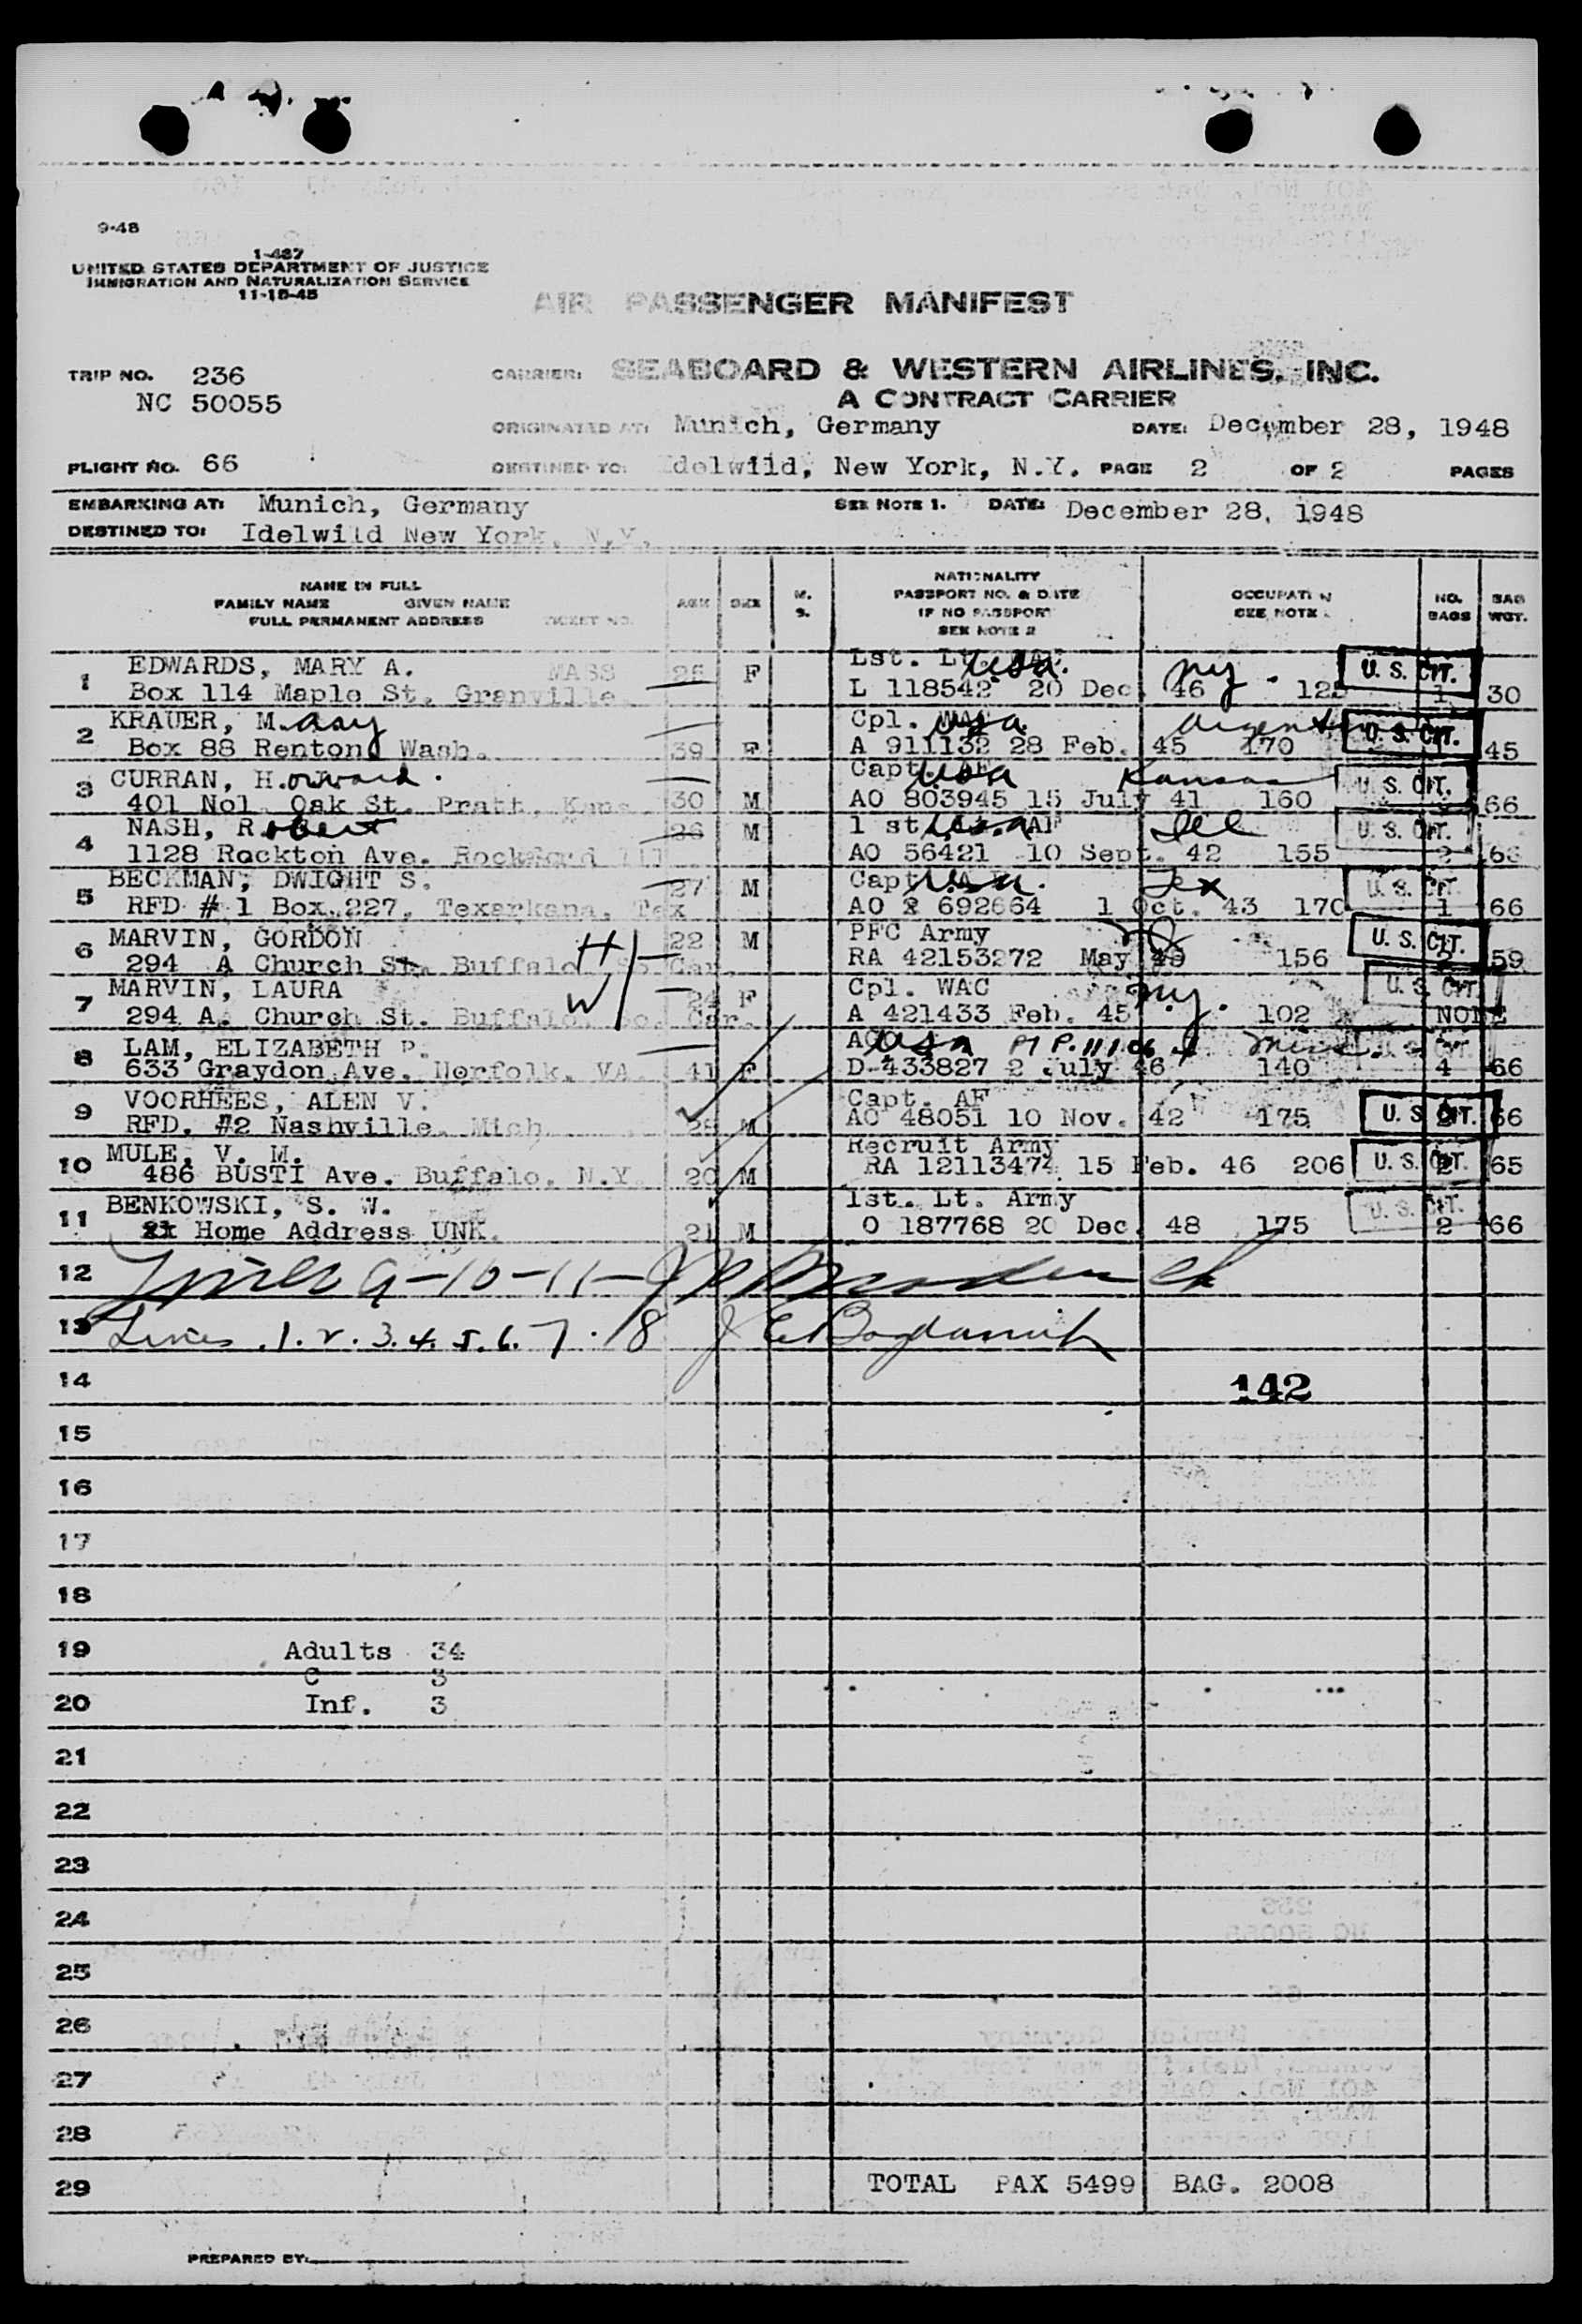 9-48
1-487
UNITED STATES DEPARTMENT OF JUSTICE
IMMIGRATION AND NATURALIZATION SERVICE
11-15-45
AIR PASSENGER MANIFEST
TRIP NO. 236
CARRIER: SEABOARD & WESTERN AIRLINES, INC.
NC 50055
A CONTRACT CARRIER
ORIGINATED AT: Munich, Germany DATE: December 28, 1948
FLIGHT NO. 66 DESTINED TO: Idelwild, New York, N.Y. PAGE 2 OF 2 PAGES
EMBARKING AT: Munich, Germany SEE NOTE 1. DATE: December 28, 1948
DESTINED TO: Idelwild New York, N.Y.
NAME IN FULL
FAMILY NAME GIVEN NAME
FULL PERMANENT ADDRESS TICKET NO.
AGE SEX M. S.
NATIONALITY
PASSPORT NO. & DATE
IF NO PASSPORT
SEE NOTE 2
OCCUPATI N
SEE NOTE
NO. BAGS
BAG WGT.
1 EDWARDS, MARY A. MASS 26 F Lst. Lt. USA. NY. U. S. CIT.
Box 114 Maple St. Granville L 118542 20 Dec. 46 125 1 30
2 KRAUER, M. Cpl. WAC USA U. S. CIT.
Box 88 Renton Wash. 39 F A 911132 28 Feb. 45 170 45
3 CURRAN, H.oward. Capt. USA Kansas U. S. CIT.
401 Nol. Oak St. Pratt, Kans. 30 M AO 803945 15 July 41 160 66
4 NASH, Robert 26 M 1 st USA AF Ill U. S. CIT.
1128 Rockton Ave. Rockford Ill AO 56421 10 Sept. 42 155 2 66
5 BECKMAN, DWIGHT S. 27 M Capt. USA. Tex U. S. CIT.
RFD # 1 Box 227, Texarkana, Tex AO 692664 1 Oct. 43 170 1 66
6 MARVIN, GORDON H 22 M PFC Army U. S. CIT.
294 A Church St. Buffalo, So. Car. RA 42153272 May 156 2 59
7 MARVIN, LAURA W 24 F Cpl. WAC N.Y. U. S. CIT.
294 A. Church St. Buffalo, So. Car. A 421433 Feb. 45 102 NONE
8 LAM, ELIZABETH P. USA U. S. CIT.
633 Graydon Ave. Norfolk, VA. 41 F D-433827 2 July 46 140 4 66
9 VOORHEES, ALEN V. Capt. AF
RFD. #2 Nashville, Mich 28 M AO 48051 10 Nov. 42 175 U. S. CIT. 66
10 MULE, V. M. Recruit Army
486 BUSTI Ave. Buffalo, N.Y. 20 M RA 12113474 15 Feb. 46 206 U. S. CIT. 2 65
11 BENKOWSKI, S. W. 1st. Lt. Army U. S. CIT.
Home Address UNK. 21 M O 187768 20 Dec. 48 175 2 66
12 Lines 9-10-11-
13 Lines 1. 2. 3. 4. 5. 6. 7. 8
14 142
15
16
17
18
19 Adults 34
C 3
20 Inf. 3
21
22
23
24
25
26
27
28
29 TOTAL PAX 5499 BAG. 2008
PREPARED BY: